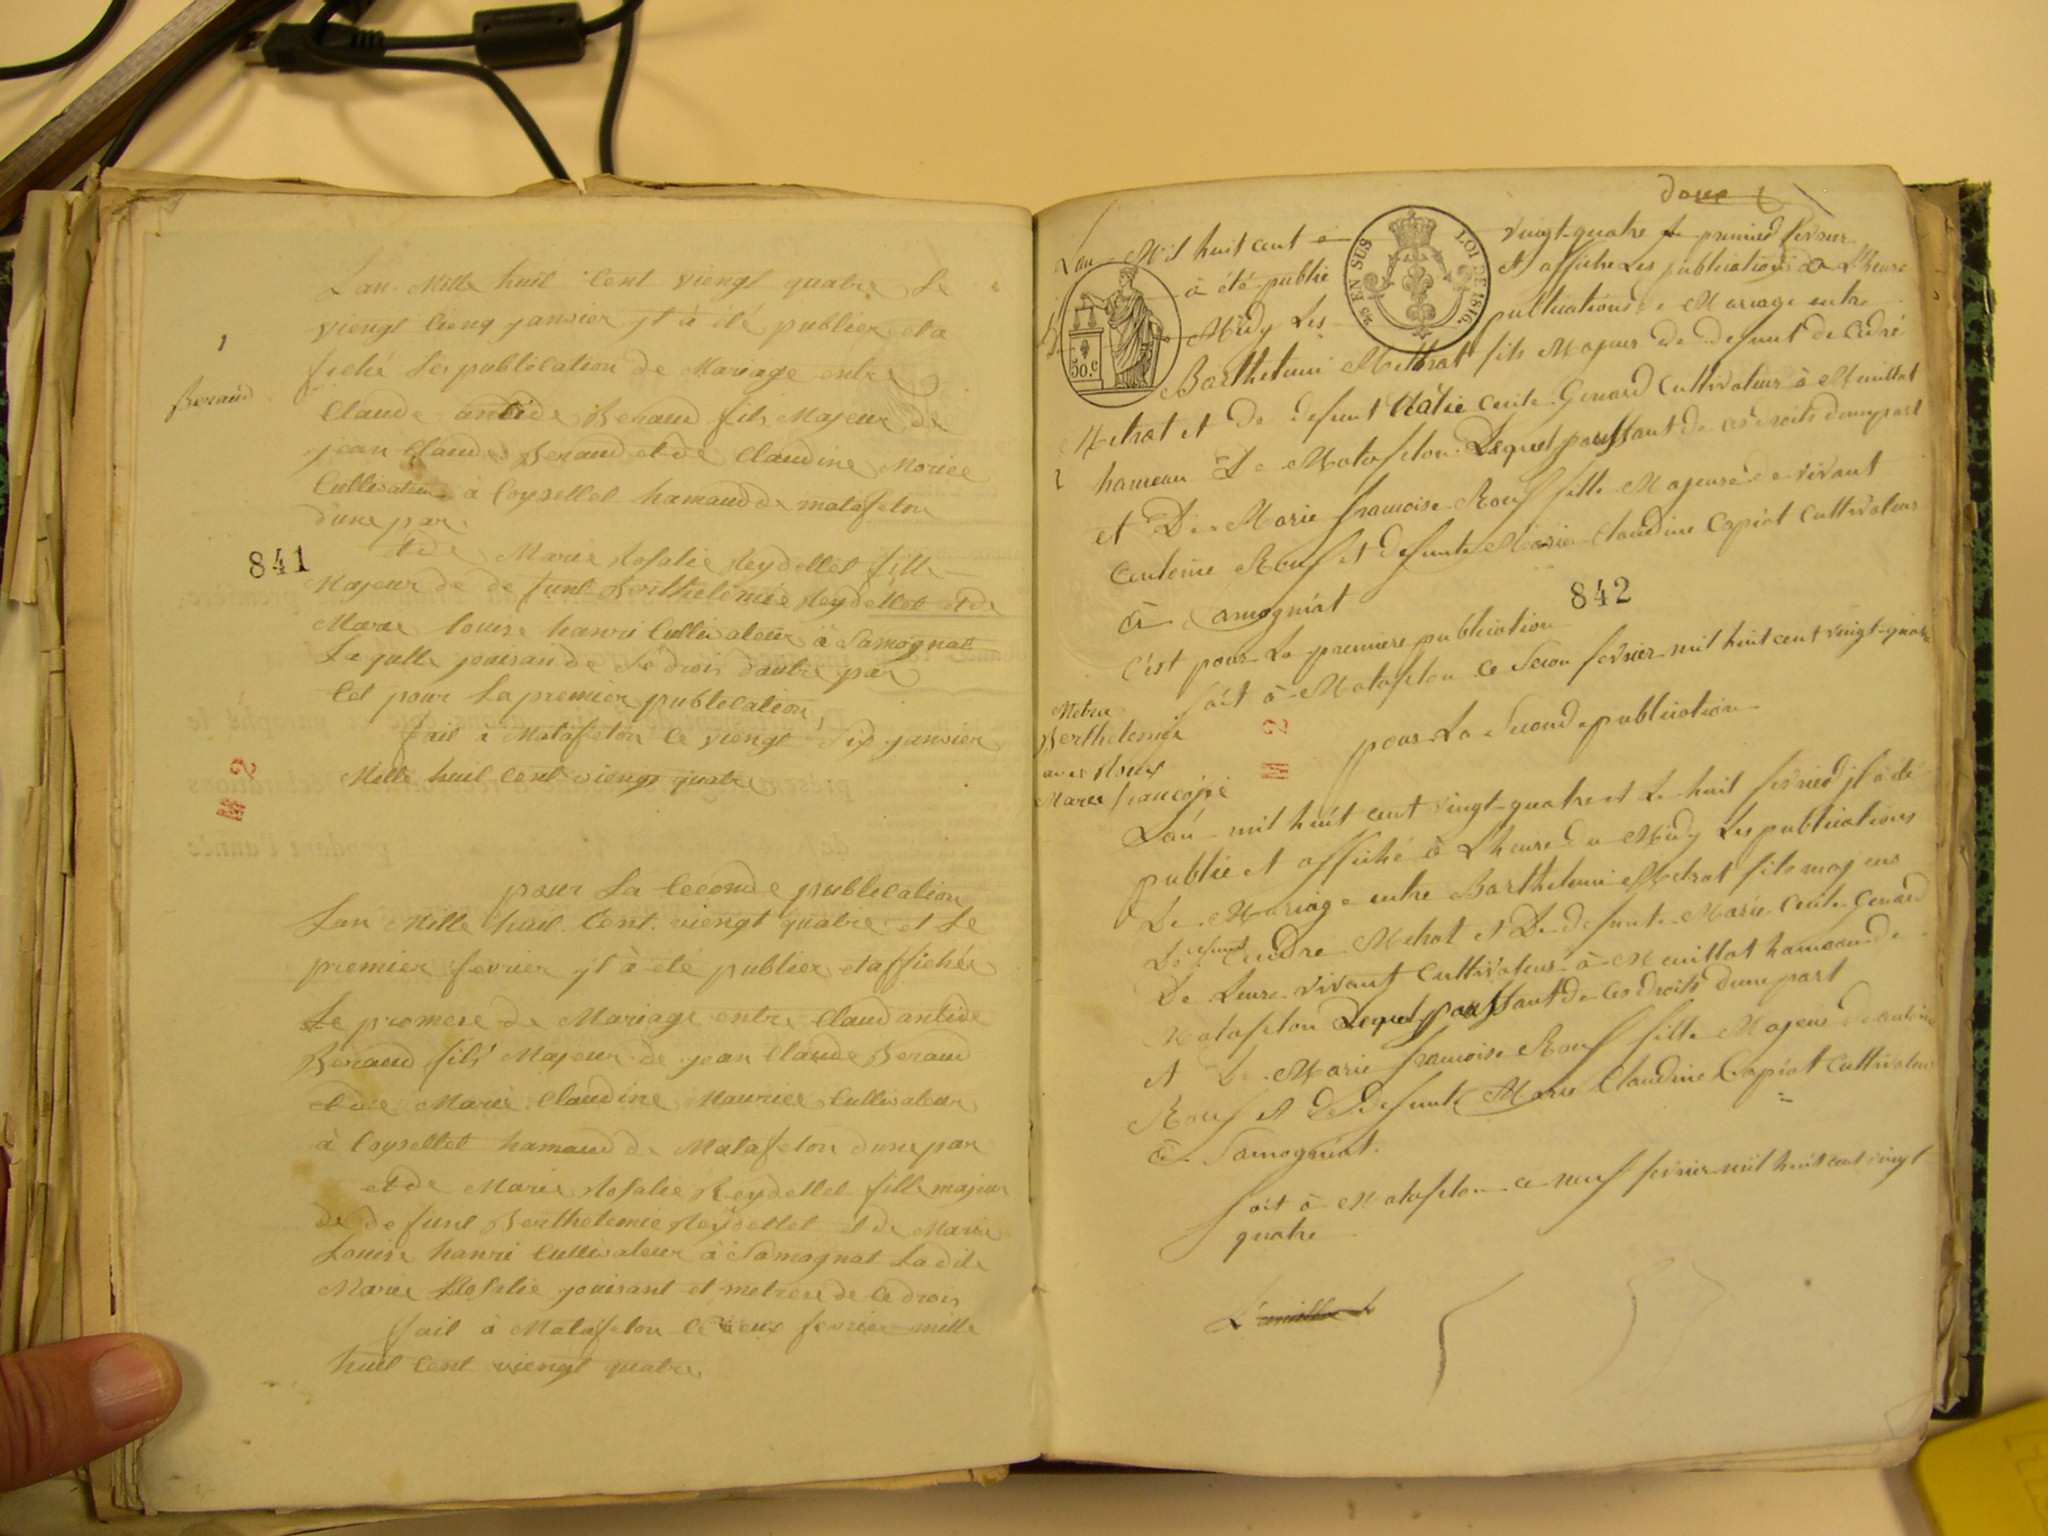 1
Beraud
Lan Mille huil Cent viengt quatre Le
viengt Cienq janvier jl à été publier eta
fiché Les publication de Mariage entre
Claude antide Beraud fils Majeur de
jean Claude Beraud et de Claudine Morice
Cultivateur à Coysellet hamaud de matafelon
d'une par
et de Marie Rosalie Reydellet fille
841
Majeur de de funt Berthelemie Reydellet et de
Marie louise hanri Cultivateur à Samognat
Laqulle jouisan de Sé drois dautre par
Cet pour La premier publication
fail à Matafelon Ce viengt Six janvier
Mille huil Cent viengt quatre
M 2
pour La Ceconde publication
Lan Mille huil Cent viengt quatre et Le
premier fevrier jl à été publier et affichér
Le promese de Mariage entre Claud antide
Beraud fils Majeur de jean Claude Beraud
et de Marie Claudine Maurice Cultivateur
à Coysellet hamaud de Matafelon dune par
et de Marie Rosalie Reydellet fille majeur
de de funt Berthelemie Reydellet et de Marie
Louise hanri Cultivateur à Samognat Ladite
Marie Rosalie jouisant et metrese de Ce drois
fail à Matafelon Ce deux fevrier mille
huil Cent viengt quatre
Lan Mil huit cent vingt-quatre le premied fevrier
à été publié et affiche Les publications a L'heure
Midy Les publications de Mariage entre
25 EN SUS LOI DE 1816.
50.c
Barthelemi Methrat fils Majeur de defunt de Cadré
Metrat et De defunt Marie Cecile Genard Cultivateur à Meuillat
2
hameau De Matafelon Lequel jouissant de ces droits d'une part
et De Marie francoise Rouf fille Majeure de vivant
Centoine Rouf et defunte Marie Claudine Copiat Cultivateur
à Samogniat
842
C'est pour La premiere publication
fait à Matafelon Ce Secon fevrier mil huit cent vingt-quatre
Metra
Berthelemie
avec Roux
Marie francoise
M 2
pour La Seconde publication
Lan mil huit cent vingt-quatre et Le huit fevried jl à été
publie et affiché à L'heure du Midy Les publications
De Mariage entre Barthelemi Metrat fils majeur
De defunt Cendre Metrat et De defunte Marie Cecile Genard
De Leurs vivant Cultivateur à Meuillat hameau de
Matafelon Lequel jouissant de Ces droits d'une part
et De Marie francoise Rouf fille Majeur de antoine
Rouf et De defunte Marie Claudine Copiat Cultivateur
à Samogniat.
fait à Matafelon ce neuf fevrier mil huit cent vingt
quatre